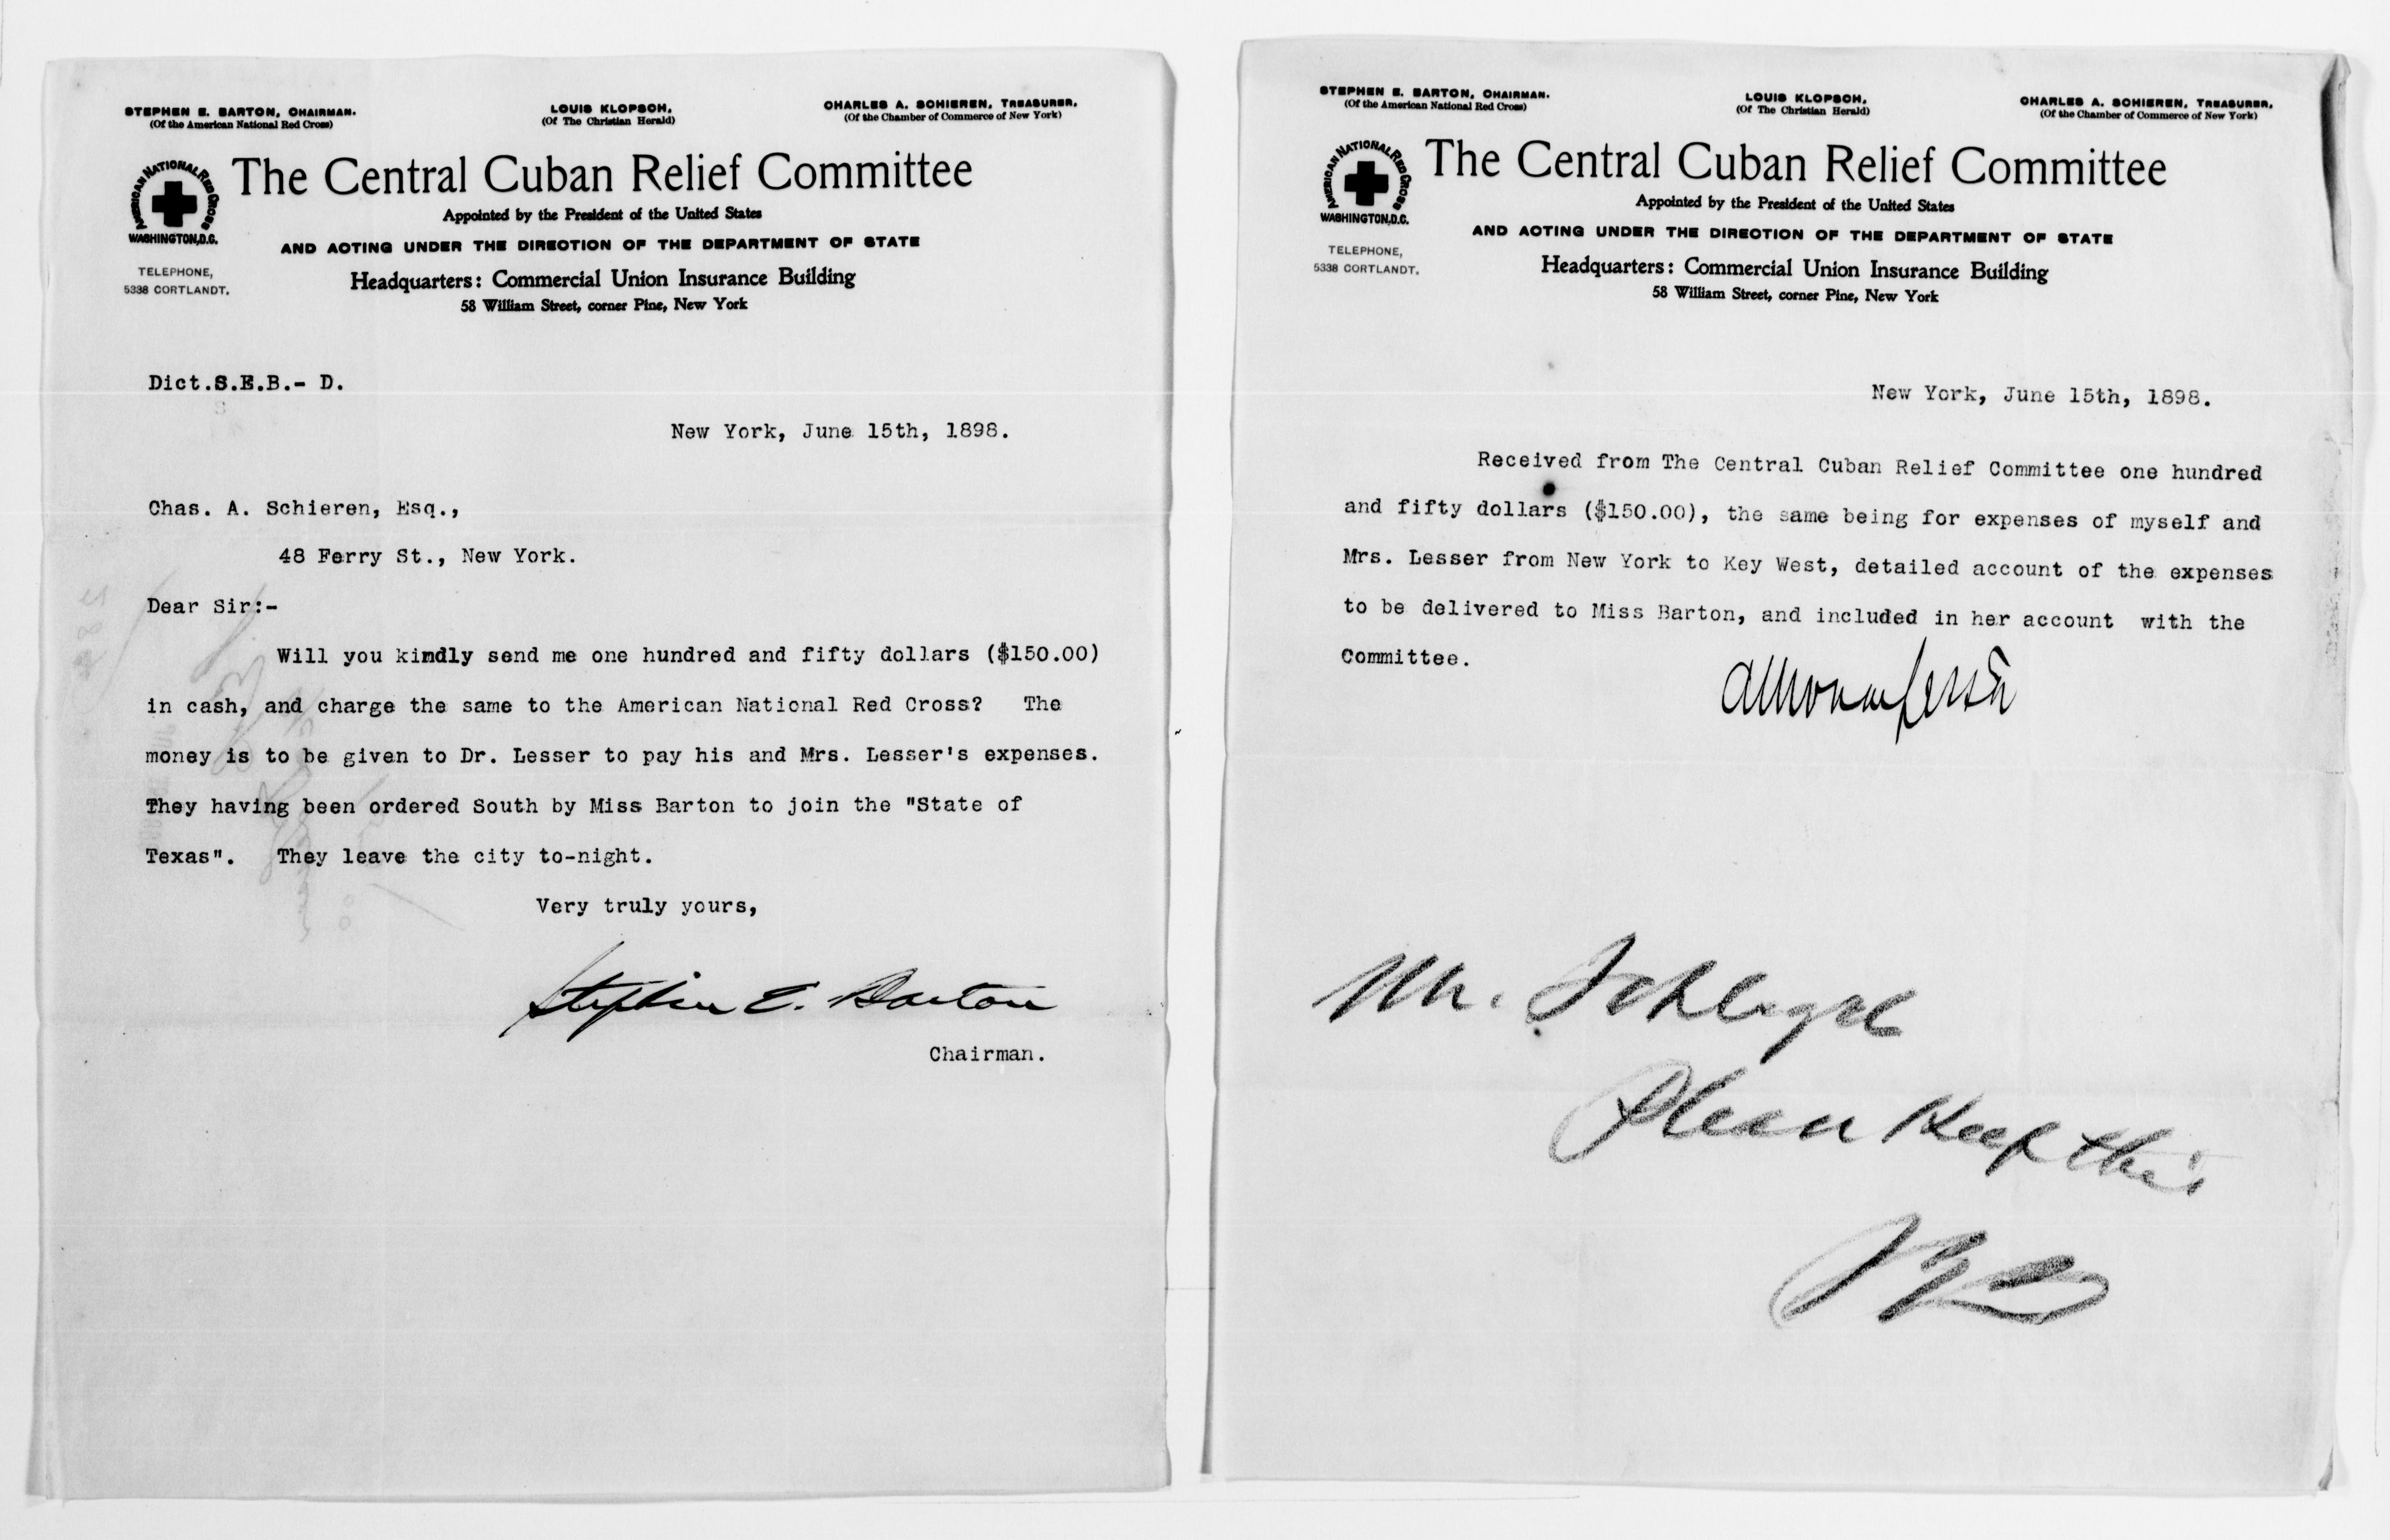 STEPHEN E. BARTON, CHAIRMAN.
(Of the American National Red Cross)
LOUIS KLOPSCH,
(Of The Christian Herald)
CHARLES A. SCHIEREN, TREASURER,
(Of the Chamber of Commerce of New York)
AMERICAN NATIONAL RED CROSS
WASHINGTON, D.C.
The Central Cuban Relief Committee
Appointed by the President of the United States
AND ACTING UNDER THE DIRECTION OF THE DEPARTMENT OF STATE
TELEPHONE,
5338 CORTLANDT.
Headquarters: Commercial Union Insurance Building
58 William Street, corner Pine, New York
Dict.S.E.B.- D.
New York, June 15th, 1898.
Chas. A. Schieren, Esq.,
48 Ferry St., New York.
Dear Sir:-
Will you kindly send me one hundred and fifty dollars ($150.00)
in cash, and charge the same to the American National Red Cross? The
money is to be given to Dr. Lesser to pay his and Mrs. Lesser's expenses.
They having been ordered South by Miss Barton to join the "State of
Texas". They leave the city to-night.
Very truly yours,
Stephen E. Barton
Chairman.
STEPHEN E. BARTON, CHAIRMAN.
(Of the American National Red Cross)
LOUIS KLOPSCH,
(Of The Christian Herald)
CHARLES A. SCHIEREN, TREASURER,
(Of the Chamber of Commerce of New York)
AMERICAN NATIONAL RED CROSS
WASHINGTON, D.C.
The Central Cuban Relief Committee
Appointed by the President of the United States
AND ACTING UNDER THE DIRECTION OF THE DEPARTMENT OF STATE
TELEPHONE,
5338 CORTLANDT.
Headquarters: Commercial Union Insurance Building
58 William Street, corner Pine, New York
New York, June 15th, 1898.
Received from The Central Cuban Relief Committee one hundred
and fifty dollars ($150.00), the same being for expenses of myself and
Mrs. Lesser from New York to Key West, detailed account of the expenses
to be delivered to Miss Barton, and included in her account with the
Committee.
Mr. Schlegel
Please Keep this